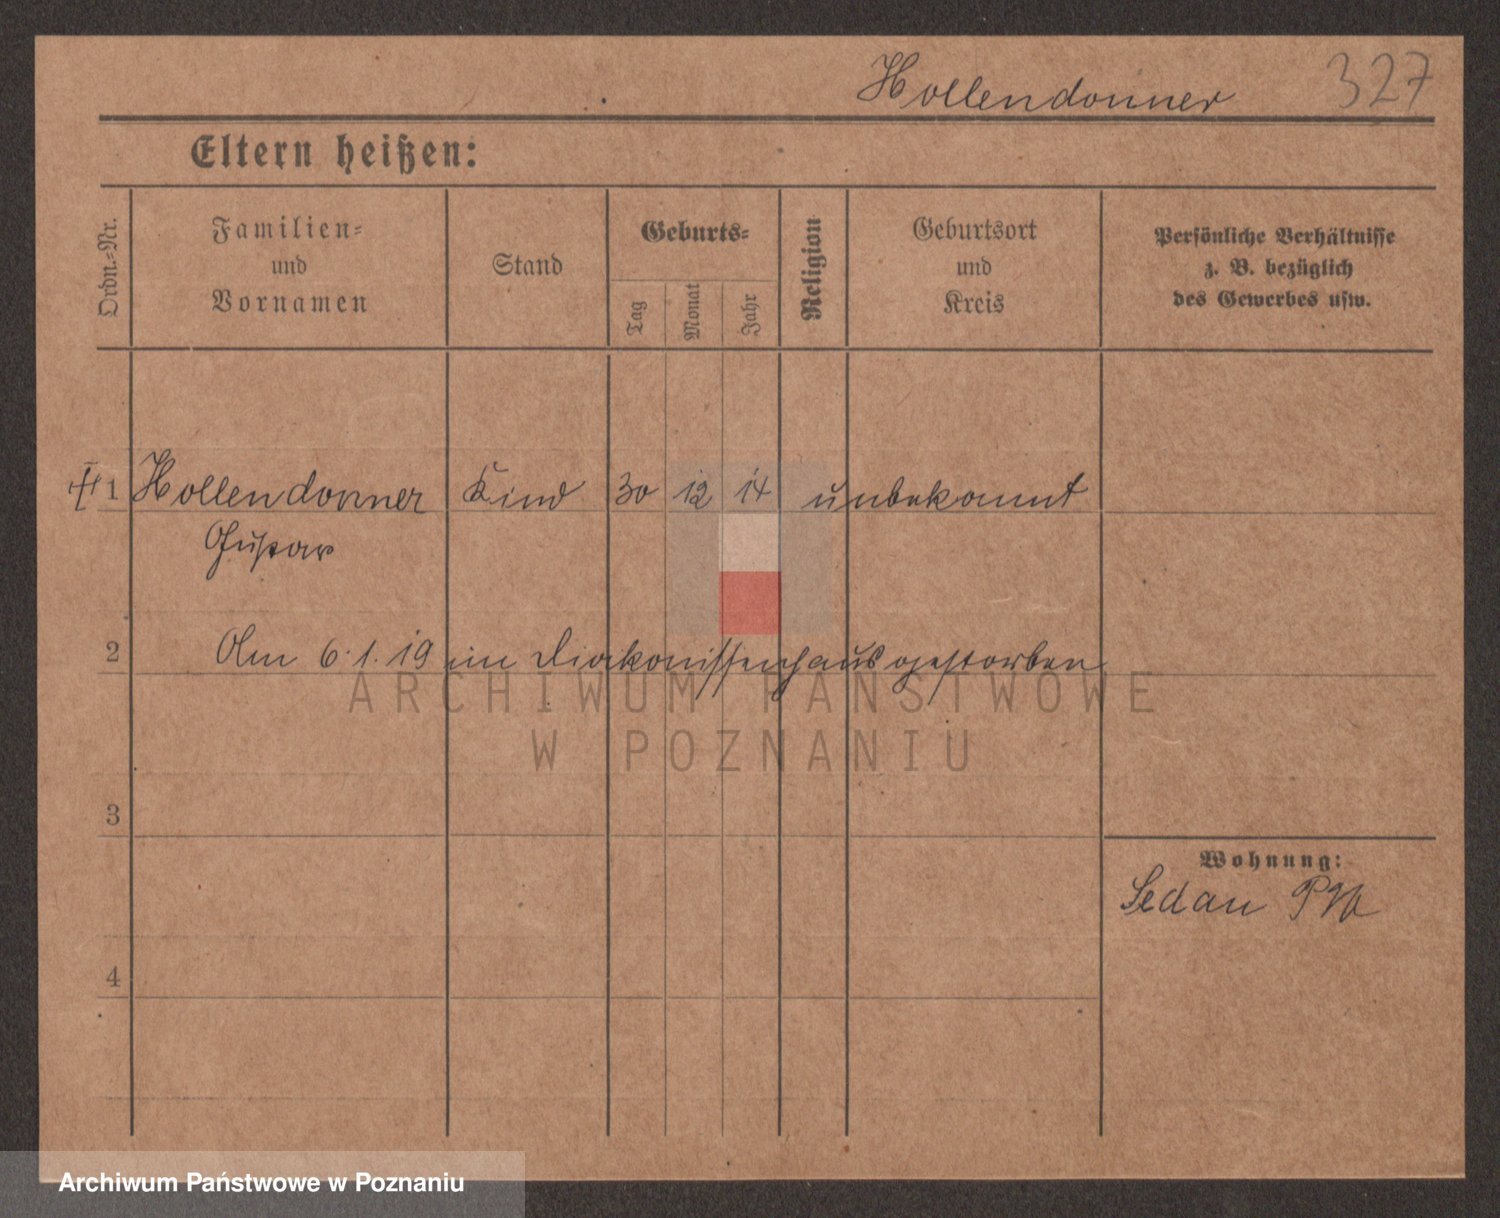 Hollendonner 327
Eltern heißen:
Ordn.-Nr.
Familien-
und
Vornamen
Stand
Geburts-
Tag
Monat
Jahr
Religion
Geburtsort
und
Kreis
Persönliche Verhältnisse
z. B. bezüglich
des Gewerbes usw.
1 Hollendonner Kind 30 12 14 unbekannt
Gustav
2 Am 6.1.19 im Diakonissenhaus gestorben
ARCHIWUM PAŃSTWOWE
W POZNANIU
3
Wohnung:
Sedan
4
Archiwum Państwowe w Poznaniu